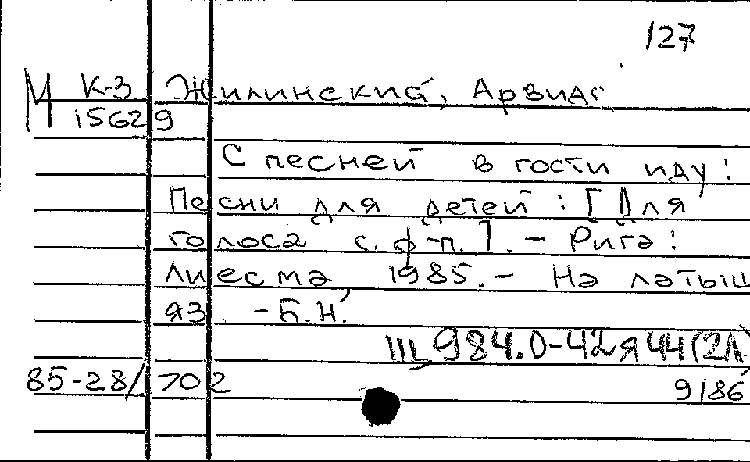 127
М К-3 Жилинский, Арвидс
15629
С песней в гости иду:
Песни для детей: [Для
голоса с ф-п.]. - Рига:
Лиесма, 1985. - На латыш
яз. - Б.Н.
Щ984.0-42я44(2Л)
85-28/702 9/86